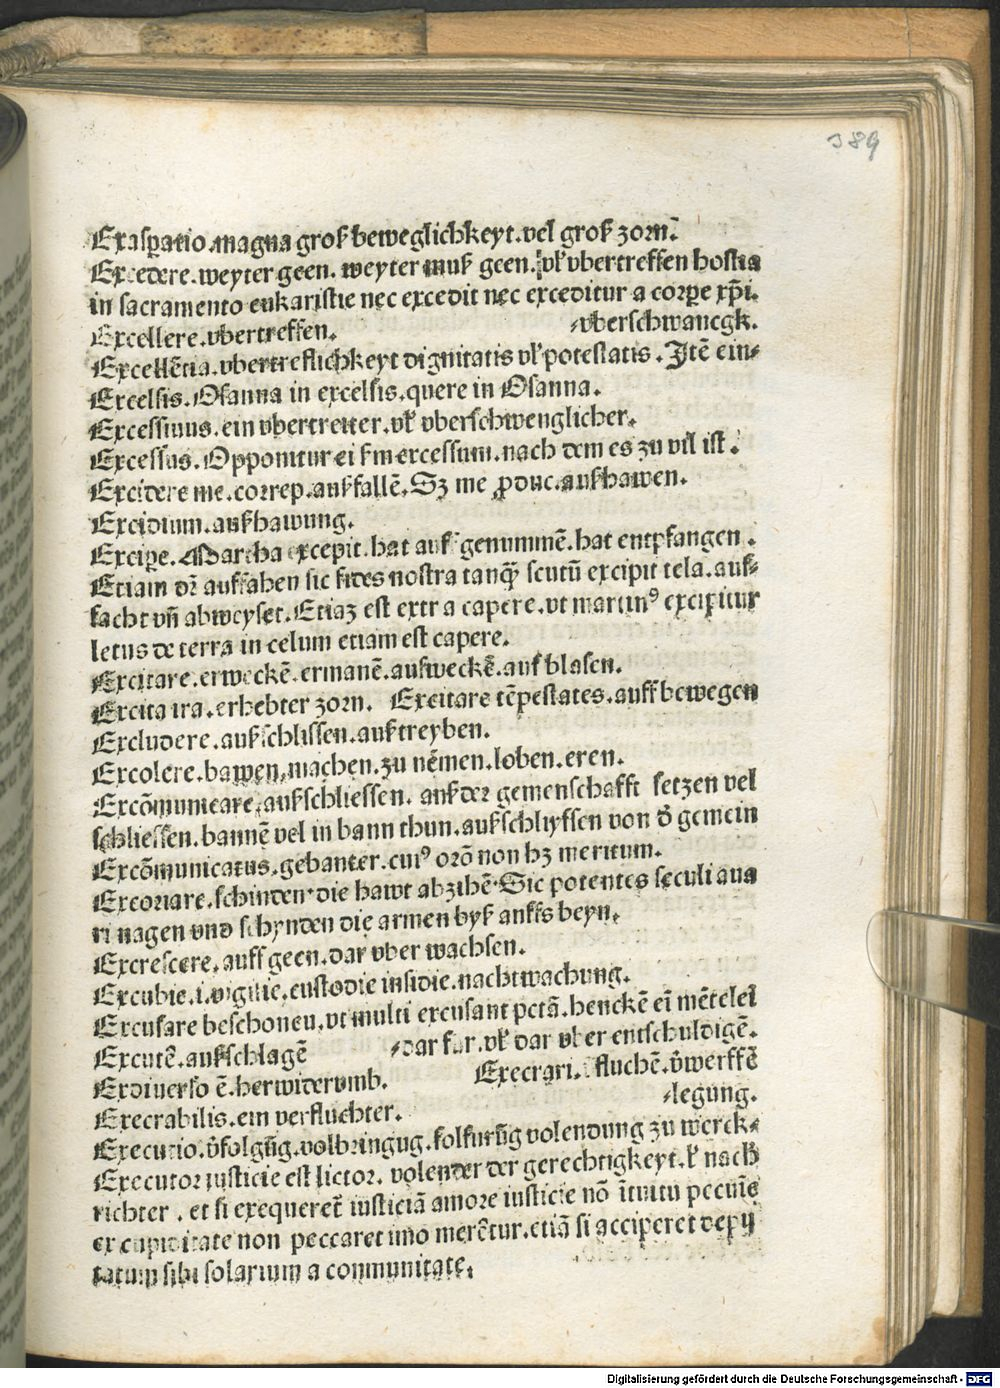 389
Exaspatio.magna groß beweglichkeyt.vel groß zorn̄.
Excedere.weyter geen. weyter muß geen. vł vbertreffen hostia
in sacramento eukaristie nec excedit nec exceditur a corpe xp̄i.
Excellere.vbertreffen. ⸗vberschwancgk.
Excellētia.vbertreflichkeyt dignitatis vł potestatis. Jtē ein⸗
Excelsis.Osanna in excelsis.quere in Osanna.
Excessiuus.ein vbertretter.vł vberschwenglicher.
Excessus.Opponitur ei ẜm excessum.nach dem es zu vil ist.
Excidere me.correp.außfallē.Sz me ꝓduc.außhawen.
Excidium.außhawung.
Excipe.Martha excepit.hat auf genummē.hat entpfangen.
Etiam dr̄ auffahen sic fides nostra tanq̄ scutū excipit tela.auf⸗
facht vn̄ abweyset.Etiaz est extra capere.vt martinꝰ excipitur
letus de terra in celum etiam est capere.
Excitare.erweckē.ermanē.aufweckē.auf blasen.
Excita ira.erhebter zorn. Excitare tēpestates.auff bewegen
Excludere.außschlissen.außtreyben.
Excolere.bawen.machen.zu nēmen.loben.eren.
Excōmunicare.außschliessen. auß der gemenschafft setzen vel
schliessen.bannē vel in bann thun.außschliyssen von đ gemein
Excōmunicatus.gebanter.cuiꝰ orō non hz meritum.
Excoriare.schinden.die hawt abzihē.Sic potentes seculi aua
ri nagen vnd schynden die armen byß auffs beyn.
Excrescere.auff geen.dar vber wachsen.
Excubie.i.vigilie.custodie insidie.nachtwachung.
Excusare beschonen.vt multi excusant pctā.henckē eī mētelel
Excutē.außschlagē ⸗dar fur.vł dar vber entschuldigē.
Exdiuerso ē.herwiderumb. Execrari. fluchē.v̄werffē
Execrabilis.ein verfluchter. ⸗legung.
Executio.v̄folgūg.volbringug.folfurūg volendung zu werck⸗
Executor iusticie est lictor. volender der gerechtigkeyt.ł nach
richter. et si exequeret̄ iusticiā amore iusticie nō ītuitu pecuīe
ex cupiditate non peccaret imo merētur.etiā si acciperet depu
tatum sibi solarium a communitate.
Digitalisierung gefördert durch die Deutsche Forschungsgemeinschaft - DFG